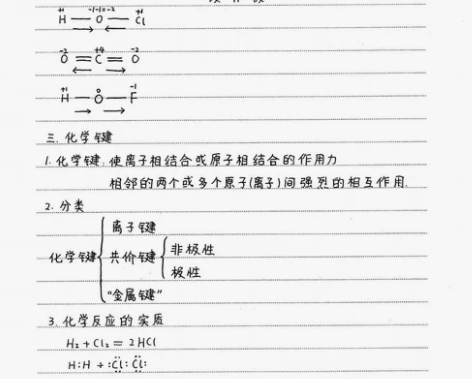 +1 -1-1=-2 +1
H — O — Cl
-2 +4 -2
O = C = O
+1 0 -1
H — O — F
三. 化学键
1. 化学键. 使离子相结合或原子相结合的作用力
相邻的两个或多个原子(离子)间强烈的相互作用.
2. 分类
离子键
化学键 共价键 非极性
极性
"金属键"
3. 化学反应的实质
H₂ + Cl₂ = 2HCl
H:H + :C̈l: C̈l: